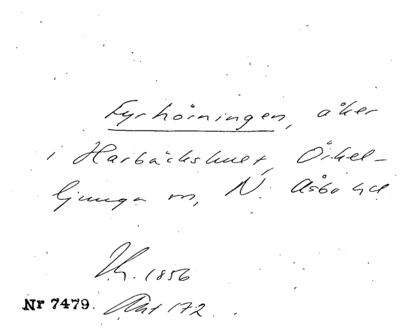 Fyrhörningen, åker
i Harbäckshult, Örkel-
ljunga sn, N. Åsbo hd
1856
Nr 7479. Akt 172.